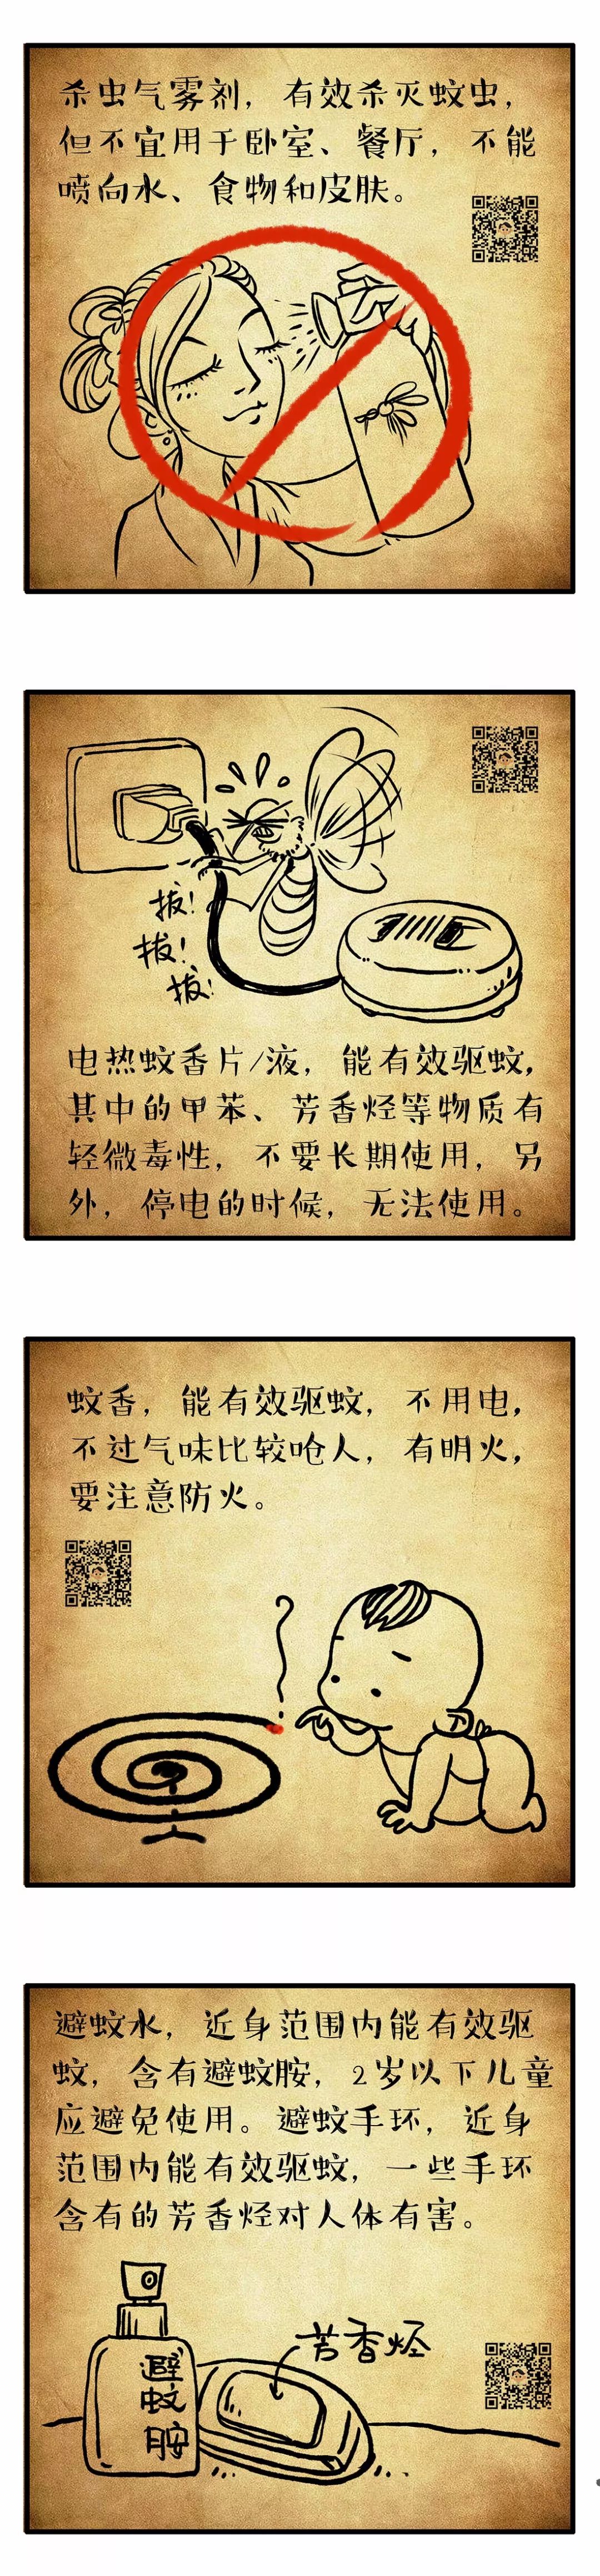 杀虫气雾剂，有效杀灭蚊虫，
但不宜用于卧室、餐厅，不能
喷向水、食物和皮肤。
拔！
拔！
拔！
电热蚊香片/液，能有效驱蚊，
其中的甲苯、芳香烃等物质有
轻微毒性，不要长期使用，另
外，停电的时候，无法使用。
蚊香，能有效驱蚊，不用电，
不过气味比较呛人，有明火，
要注意防火。
避蚊水，近身范围内能有效驱
蚊，含有避蚊胺，2岁以下儿童
应避免使用。避蚊手环，近身
范围内能有效驱蚊，一些手环
含有的芳香烃对人体有害。
芳香烃
避
蚊
胺